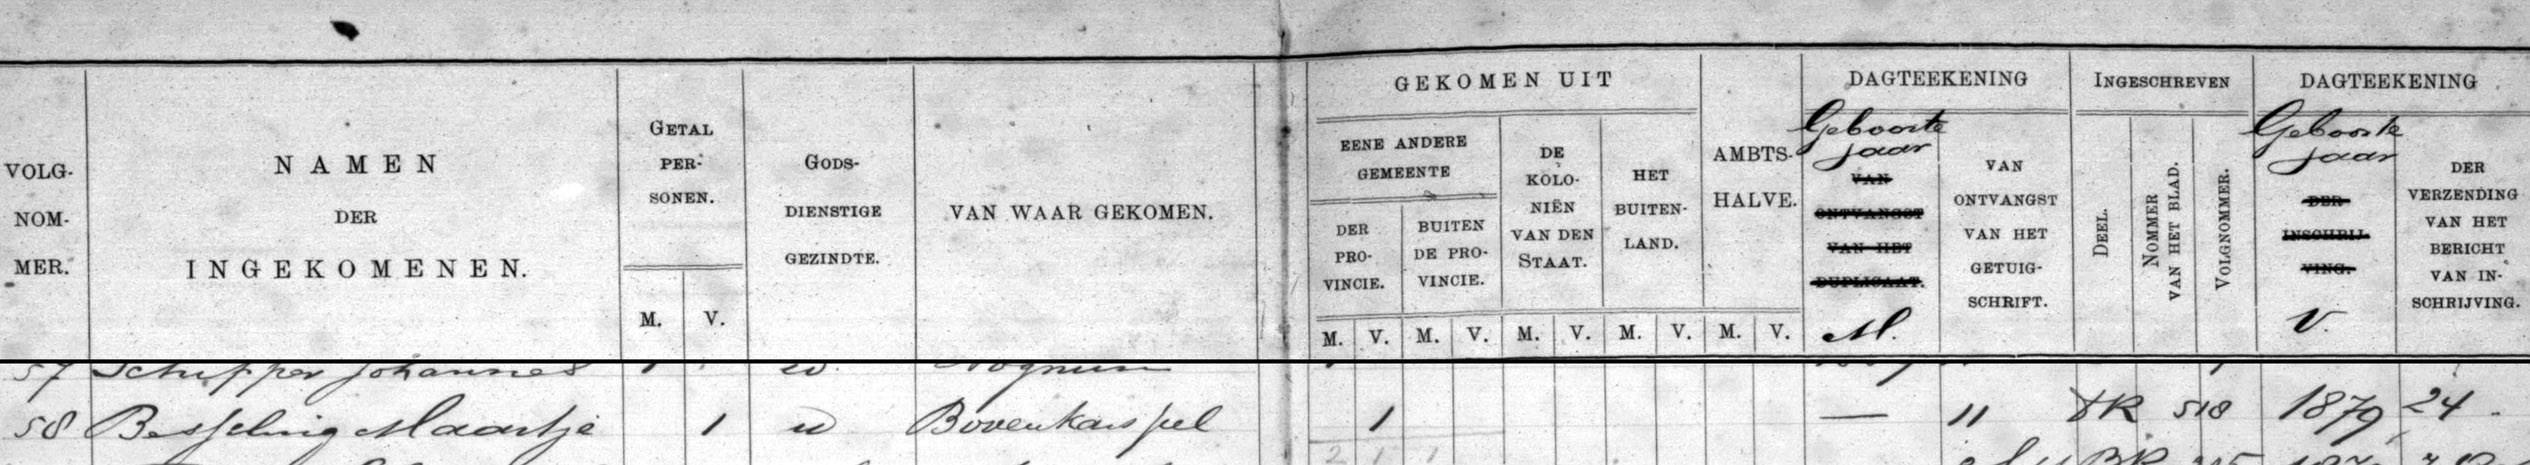 VOLG-
NOM-
MER.
NAMEN
DER
INGEKOMENEN.
GETAL
PER-
SONEN.
M. V.
GODS-
DIENSTIGE
GEZINDTE.
VAN WAAR GEKOMEN.
GEKOMEN UIT
EENE ANDERE
GEMEENTE
DER
PRO-
VINCIE.
BUITEN
DE PRO-
VINCIE.
DE
KOLO-
NIËN
VAN DEN
STAAT.
HET
BUITEN-
LAND.
AMBTS-
HALVE.
M. V. M. V. M. V. M. V. M. V.
DAGTEEKENING
Geboorte
jaar
VAN
ONTVANGST
VAN HET
DUPLICAAT.
M.
VAN
ONTVANGST
VAN HET
GETUIG-
SCHRIFT.
INGESCHREVEN
DEEL.
NOMMER
VAN HET BLAD.
VOLGNOMMER.
DAGTEEKENING
Geboorte
jaar
DER
INSCHRIJ-
VING.
V.
DER
VERZENDING
VAN HET
BERICHT
VAN IN-
SCHRIJVING.
57 Schipper Johannes
58 Besseling Maartje 1 Bovenkarspel 1 — 11 518 1879 24